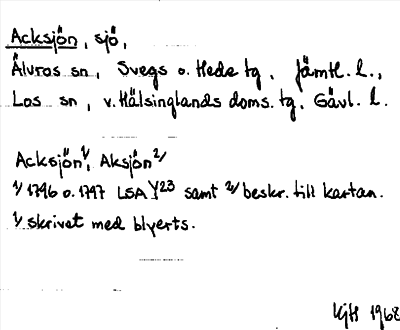 Acksjön, sjö,
Älvros sn, Svegs o. Hede tg, Jämtl. l.,
Los sn, v. Hälsinglands doms. tg, Gävl. l.
Acksjön 1/, Aksjön 2/
1/ 1796 o. 1797 LSA Y23 samt 2/ beskr. till kartan.
1/ skrivet med blyerts.
1968